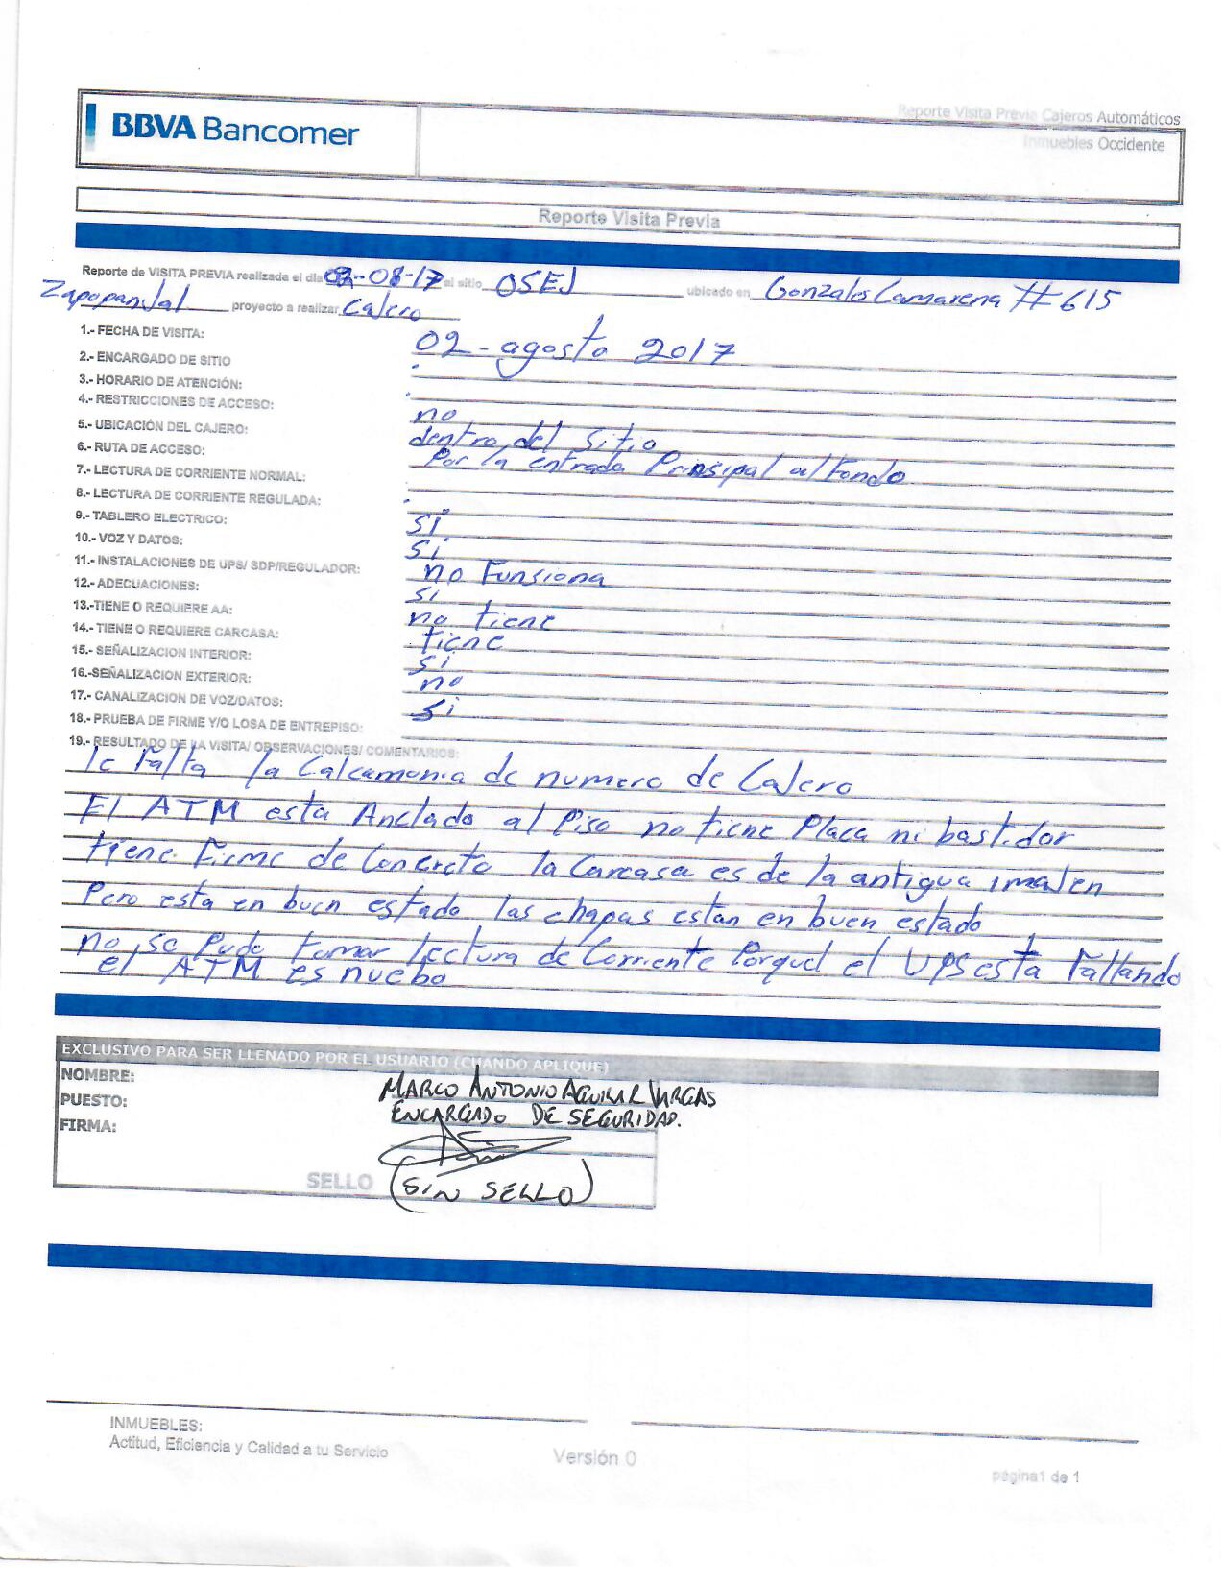 Reporte Visita Previa Cajeros Automáticos
BBVA Bancomer
Inmuebles Occidente
Reporte Visita Previa
Reporte de VISITA PREVIA realizada el dia 02-08-17 al sitio OSEJ ubicado en Gonzales Camarena #615
Zapopan Jal proyecto a realizar Cajero
1.- FECHA DE VISITA: 02-agosto 2017
2.- ENCARGADO DE SITIO
3.- HORARIO DE ATENCIÓN:
4.- RESTRICCIONES DE ACCESO: no
5.- UBICACIÓN DEL CAJERO: dentro del sitio
6.- RUTA DE ACCESO: Por la entrada Prinsipal al fondo
7.- LECTURA DE CORRIENTE NORMAL:
8.- LECTURA DE CORRIENTE REGULADA:
9.- TABLERO ELECTRICO: si
10.- VOZ Y DATOS: si
11.- INSTALACIONES DE UPS/ SDP/REGULADOR: no Funsiona
12.- ADECUACIONES: si
13.-TIENE O REQUIERE AA: no tiene
14.- TIENE O REQUIERE CARCASA: tiene
15.- SEÑALIZACION INTERIOR: si
16.-SEÑALIZACION EXTERIOR: no
17.- CANALIZACION DE VOZ/DATOS: si
18.- PRUEBA DE FIRME Y/O LOSA DE ENTREPISO:
19.- RESULTADO DE LA VISITA/ OBSERVACIONES/ COMENTARIOS:
le Falta la Calcamonia de numero de Cajero
El ATM esta Anclado al Piso no tiene Placa ni bastidor
tiene Firme de Concreto la Carcasa es de la antigua imajen
Pero esta en buen estado las chapas estan en buen estado
no se Pudo tomar lectura de Corriente Porquel el UPS esta Fallando
el ATM es nuebo
EXCLUSIVO PARA SER LLENADO POR EL USUARIO (CUANDO APLIQUE)
NOMBRE: MARCO ANTONIO AGUILAR VARGAS
PUESTO: ENCARGADO DE SEGURIDAD.
FIRMA:
SELLO (SIN SELLO)
INMUEBLES:
Actitud, Eficiencia y Calidad a tu Servicio
Versión 0
página1 de 1